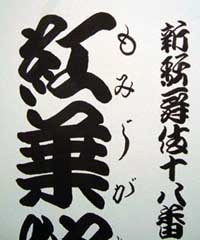 新歌舞伎十八番
もみぢが
紅葉